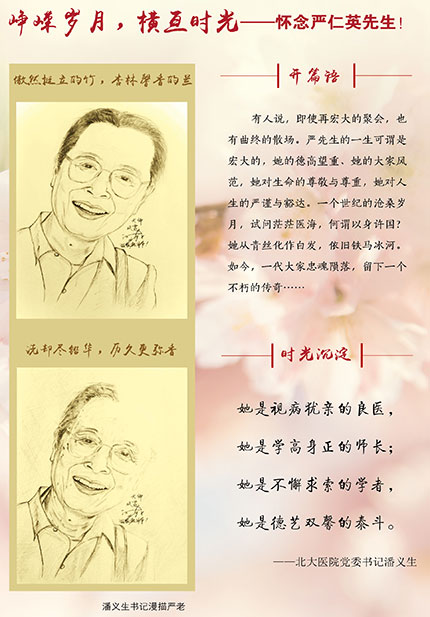 峥嵘岁月，横亘时光——怀念严仁英先生！
傲然挺立的竹，杏林馨香的兰
开篇语
有人说，即使再宏大的聚会，也
有曲终的散场。严先生的一生可谓是
宏大的，她的德高望重、她的大家风
范，她对生命的尊敬与尊重，她对人
生的严谨与豁达。一个世纪的沧桑岁
月，试问茫茫医海，何谓以身许国？
她从青丝化作白发，依旧铁马冰河。
如今，一代大家忠魂陨落，留下一个
不朽的传奇……
洗却尽铅华，历久更弥香
时光沉淀
她是视病犹亲的良医，
她是学高身正的师长；
她是不懈求索的学者，
她是德艺双馨的泰斗。
——北大医院党委书记潘义生
潘义生书记漫描严老